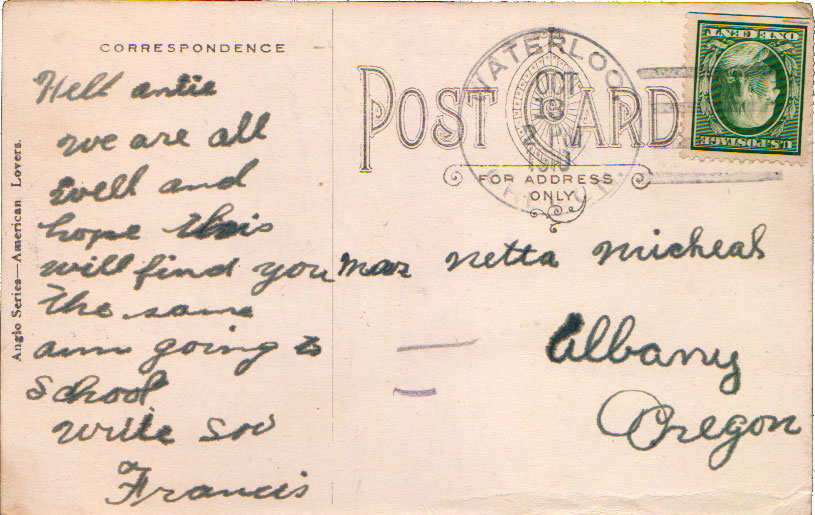 CORRESPONDENCE
Hell antie
we are all
well and
hope this
will find you
the same
am going to
School
write soo
Francis
Anglo Series—American Lovers.
POST CARD
FOR ADDRESS
ONLY
WATERLOO
OCT
3
PM
1910
U.S. POSTAGE
ONE CENT
netta micheal
Albany
Oregon